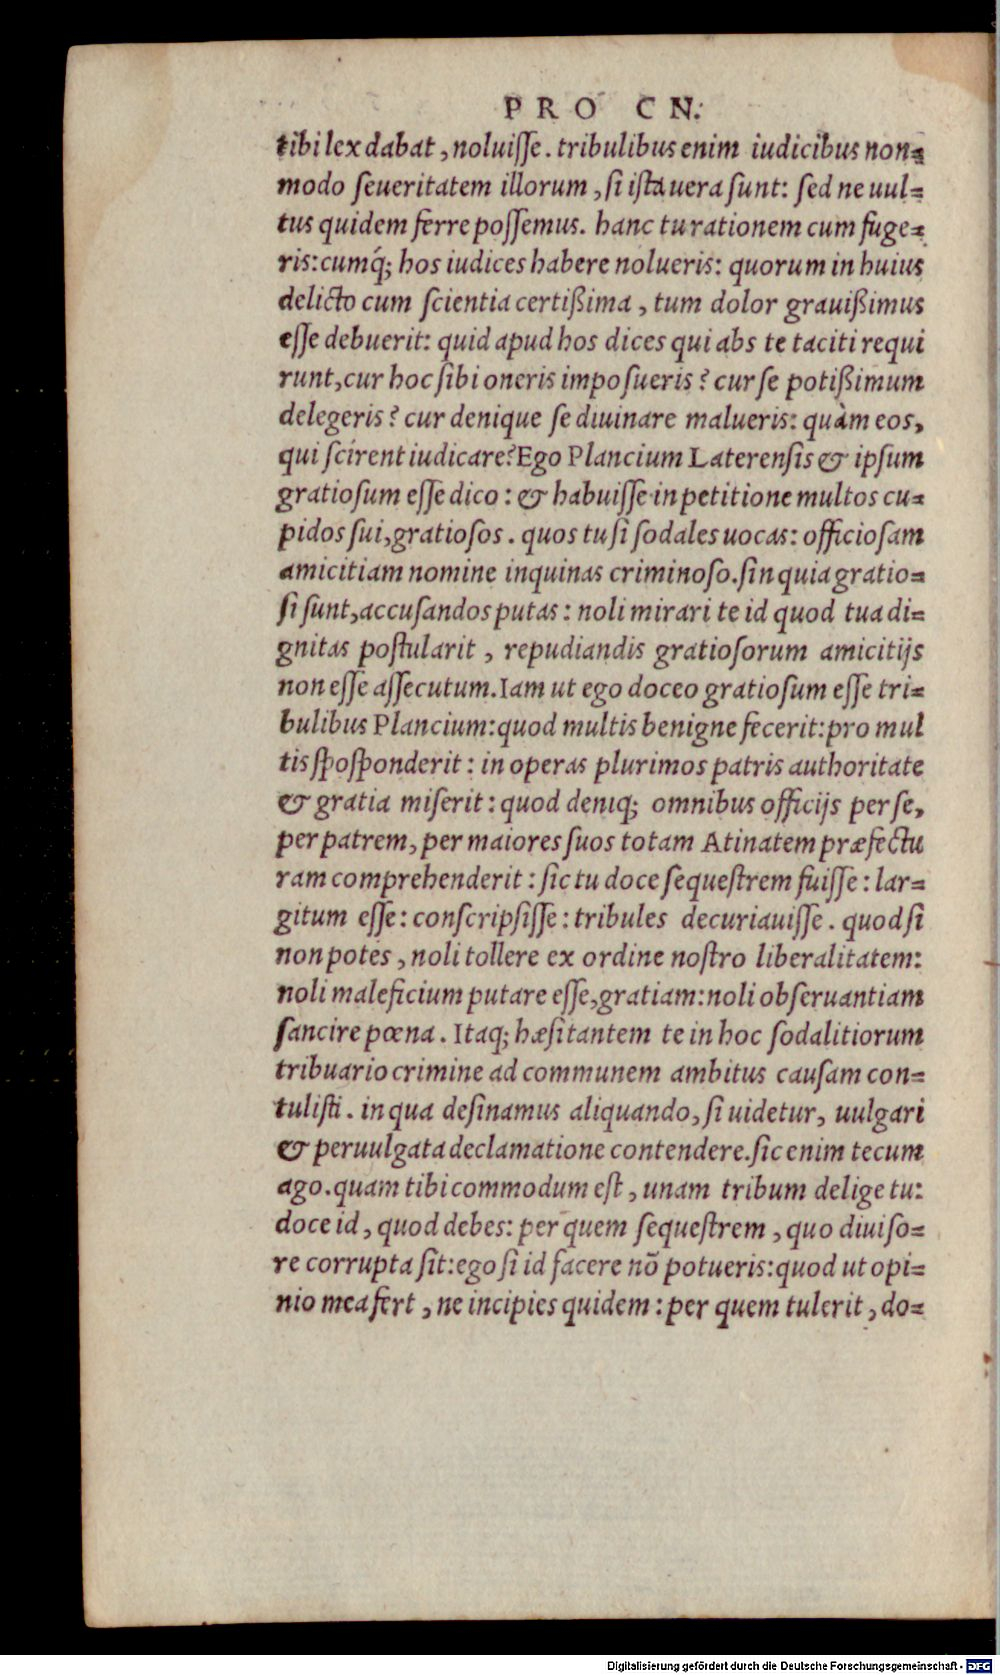 PRO CN.
tibi lex dabat, noluiſſe. tribulibus enim iudicibus non=
modo ſeueritatem illorum, ſi iſta uera ſunt: ſed ne uul=
tus quidem ferre poſſemus. hanc tu rationem cum fuge=
ris: cumq́; hos iudices habere nolueris: quorum in huius
delicto cum ſcientia certißima, tum dolor grauißimus
eſſe debuerit: quid apud hos dices qui abs te taciti requi
runt, cur hoc ſibi oneris impoſueris? cur ſe potißimum
delegeris? cur denique ſe diuinare malueris: quàm eos,
qui ſcirent iudicare? Ego Plancium Laterenſis & ipſum
gratioſum eſſe dico: & habuiſſe in petitione multos cu=
pidos ſui, gratioſos. quos tu ſi ſodales uocas: officioſam
amicitiam nomine inquinas criminoſo. ſin quia gratio=
ſi ſunt, accuſandos putas: noli mirari te id quod tua di=
gnitas poſtularit, repudiandis gratioſorum amicitijs
non eſſe aſſecutum. Iam ut ego doceo gratioſum eſſe tri=
bulibus Plancium: quod multis benigne fecerit: pro mul
tis ſpoſponderit: in operas plurimos patris authoritate
& gratia miſerit: quod deniq; omnibus officijs per ſe,
per patrem, per maiores ſuos totam Atinatem præfectu
ram comprehenderit: ſic tu doce ſequeſtrem fuiſſe: lar=
gitum eſſe: conſcripſiſſe: tribules decuriauiſſe. quod ſi
non potes, noli tollere ex ordine noſtro liberalitatem:
noli maleficium putare eſſe, gratiam: noli obſeruantiam
ſancire pœna. Itaq; hæſitantem te in hoc ſodalitiorum
tribuario crimine ad communem ambitus cauſam con=
tuliſti. in qua deſinamus aliquando, ſi uidetur, uulgari
& peruulgata declamatione contendere. ſic enim tecum
ago. quam tibi commodum eſt, unam tribum delige tu:
doce id, quod debes: per quem ſequeſtrem, quo diuiſo=
re corrupta ſit: ego ſi id facere nō potueris: quod ut opi=
nio mea fert, ne incipies quidem: per quem tulerit, do=
Digitalisierung gefördert durch die Deutsche Forschungsgemeinschaft - DFG